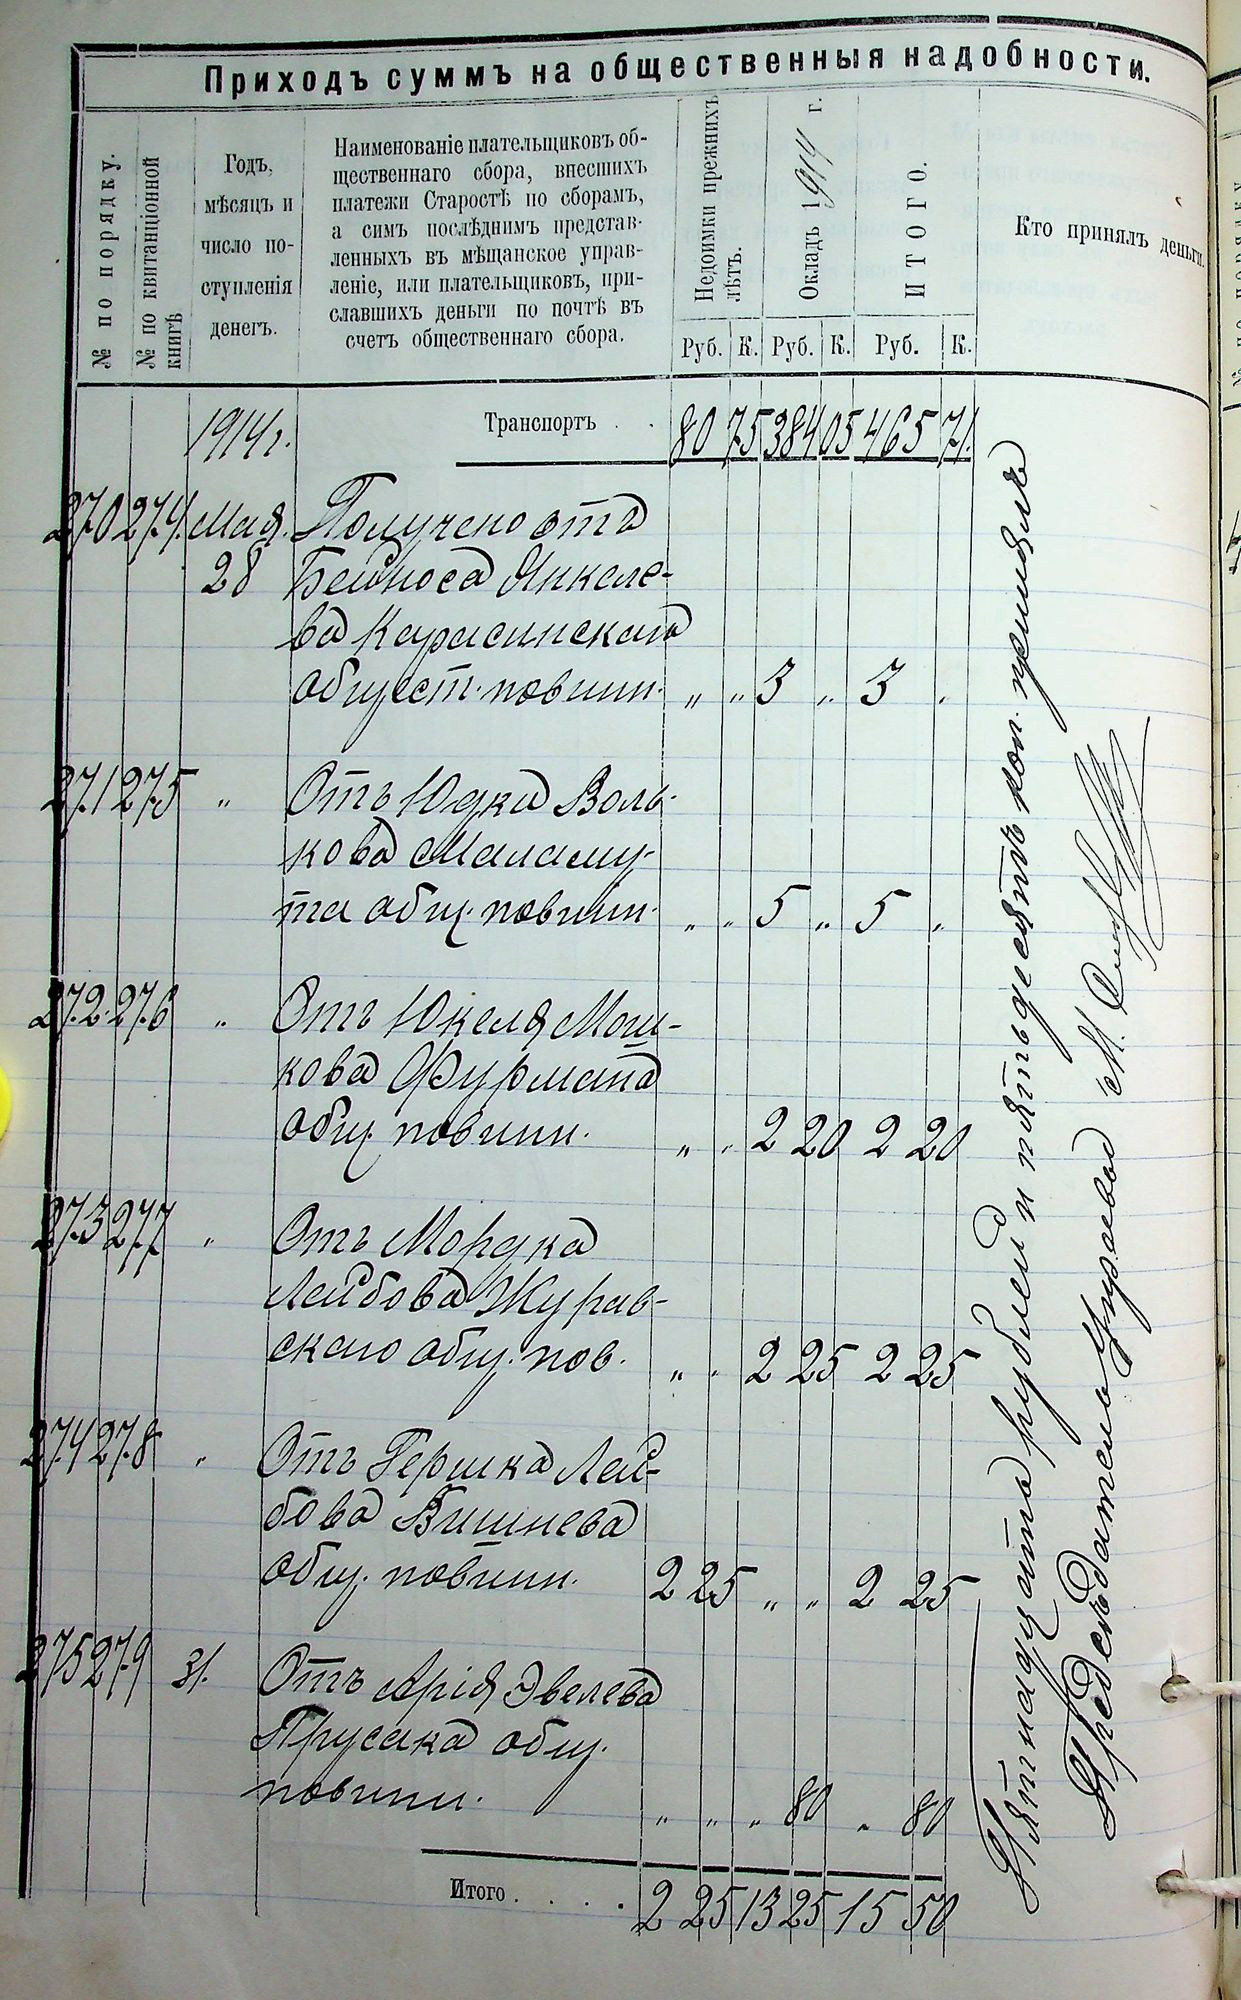 Приходъ суммъ на общественныя надобности.
№ по порядку.
№ по квитанціонной
книгѣ
Годъ,
мѣсяцъ и
число по-
ступленія
денегъ.
Наименованіе плательщиковъ об-
щественнаго сбора, внесшихъ
платежи Старостѣ по сборамъ,
а симъ послѣднимъ представ-
ленныхъ въ мѣщанское управ-
леніе, или плательщиковъ, при-
славшихъ деньги по почтѣ въ
счетъ общественнаго сбора.
Недоимки прежнихъ
лѣтъ.
Окладъ 1914 г.
ИТОГО.
Кто принялъ деньги.
Руб. К. Руб. К. Руб. К.
1914 г. Транспортъ . . 80 75 384 05 465 71.
270 274. Мая. Получено отъ
28 Бейноса Янкеле-
ва Карасинскаго
общест. повинн. „ „ 3 „ 3 „
271 275 „ Отъ Юдка Воль-
кова Маламу-
та общ. повинн. „ „ 5 „ 5 „
272. 276 „ Отъ Юкеля Мош-
кова Фурмана
общ. повинн. „ „ 2 20 2 20
273 277 „ Отъ Мордка
Лейбова Журав-
скаго общ. пов. „ „ 2 25 2 25
274 278 „ Отъ Гершка Лей-
бова Вишнева
общ. повинн. 2 25 „ „ 2 25
275 279 31. Отъ Арія Эвелева
Прусака общ.
повинн. „ „ „ 80 „ 80
Итого . . . . 2 25 13 25 15 50
Пятнадцать рублей и пятьдесятъ коп. принялъ
Предсѣдатель Управы М.